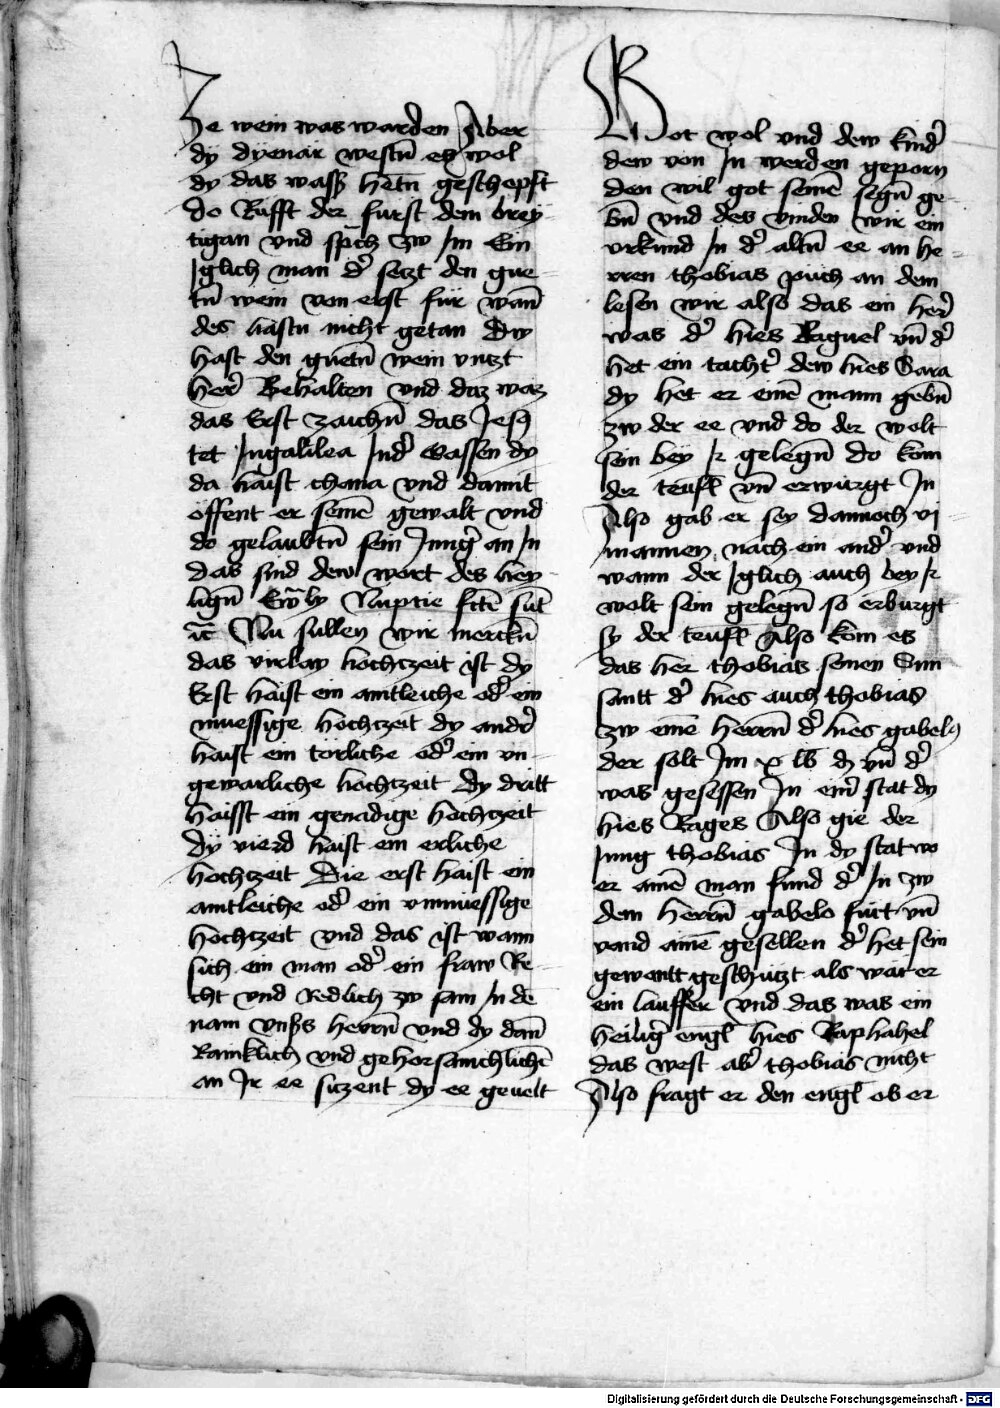 Ze wein was warden Aber
dÿ dyenär westn̄ es wol
dÿ das wass hetn̄ geschepft
do Rufft der furst dem brey
tigan vnd sp̄ch zw Im Ein
Iglich man d̓ setzt den gue
tn̄ wein von erst für wan̄
des hastu nicht getan Dw
hast den guetn̄ wein vntzt
her̓ Behalten vnd daz waz
das Erst zaichn̄ das Jesꝰ
tet Ingalilea Ind̓ Gassen dy
da haist chana vnd damit
öffent er seinē gewalt vnd
do gelaubtn̄ sein Jung̓ an In
das sind dew wort des hey
lign̄ Ew̄ly Nuptie fctē sūt
ꝛc̄ Nu sullen wir merckn̄
das virlay hochtzeit ist dy
Erst haist ein amtleiche od̓ ein
muessige hochtzeit dy andr̓
haist ein törliche od̓ ein vn
gewarliche hochtzeit dy dritt
haisst ein genadige hochtzeit
dÿ vierd haist ein erliche
hochtzeit Die erst haist ein
amtleiche od̓ ein vnmuessige
hochtzeit vnd das ist wann
sich ein man od̓ ein fraw Re
cht vnd Redlich zw sam In dē
nam vnßs herrn̄ vnd dy dan̄
Ramklich vnd gehorsamchlichē
an Ir ee sitzent dy ee geuelt
Got wol vnd dew kind̓
dew von In werden geporn
den wil got seinē segn̄ ge
bn̄ vnd des vinden wir ein
vrkund In d̓ altn̄ ee an he
rren thobias puch an dem
lesen wir also das ein her̓
was d̓ hies Raguel vn̄ d̓
het ein tacht̓ dew hies Sara
dy het er einē mann gebn̄
zw der ee vnd do der wolt
sein bey Ir gelegn̄ do kom
der teufl vn̄ erwürgt In
Also gab er sey dannoch vj
mannen nach ein and̓ vnd
wann der Iglich auch bey Ir
wolt sein gelegn̄ so erburgt
sy der teufl Also kom es
das her thobias seinen Sun
santt d̓ hies auch thobias
zw einē herrn̄ d̓ hies gabelꝰ
der solt Im x lb ₰ vn̄ d̓
was gesessen In ein̓ stat dy
hies Rages Also gie der
Jung thobias In dy stat wo
er ainē man fund d̓ In zw
dem herrn̄ gabelo furt vn̄
vand ainē gesellen d̓ het sein
gewantt geschützt als wär er
ein lauffer vnd das was ein
heilig̓ engl hies Raphahel
das west ab̓ thobias nicht
Also fragt er den engl ob er
Digitalisierung gefördert durch die Deutsche Forschungsgemeinschaft - DFG